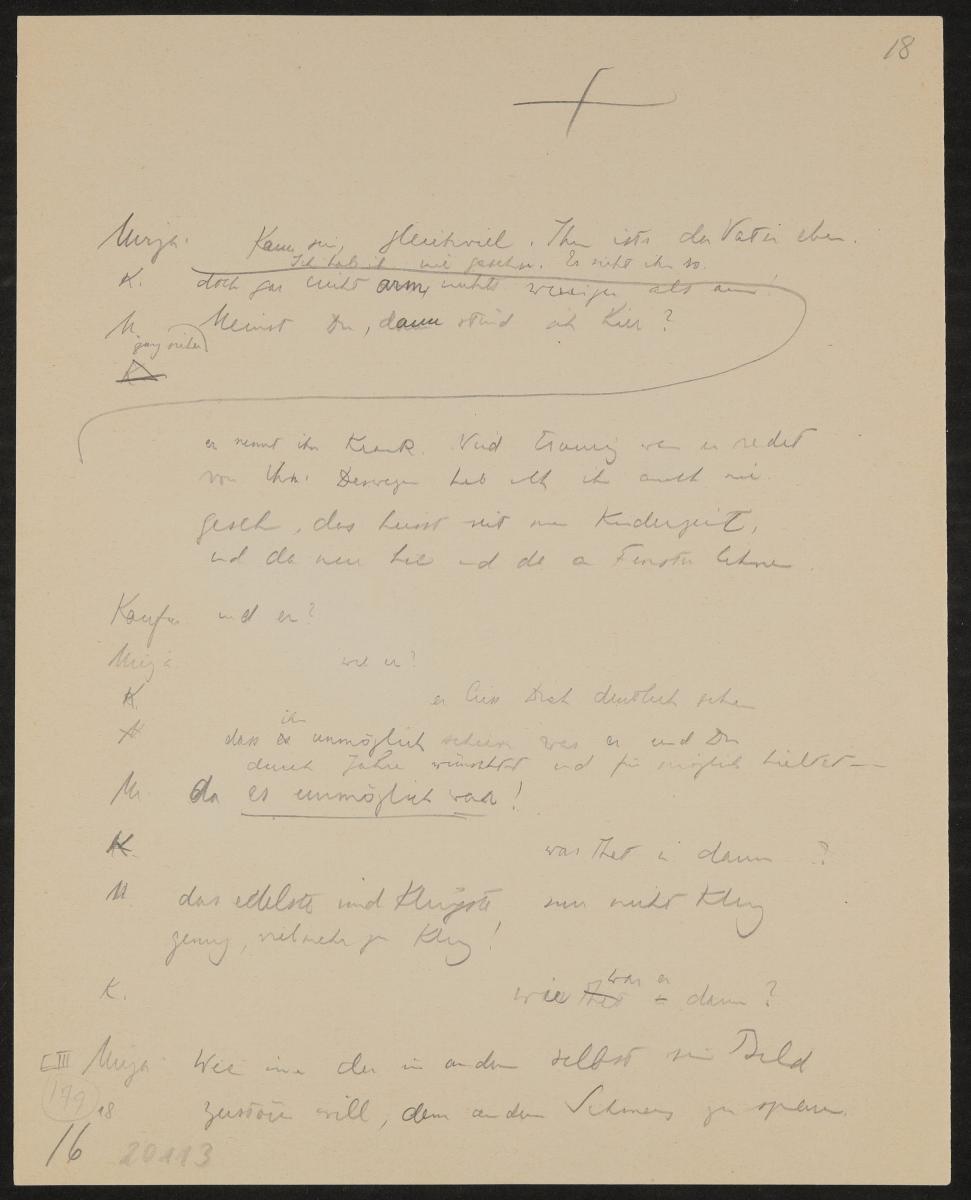 18
Mirja. Kann sein, gleichviel. Ihm ists der Vater eben.
Ich hab ihn nie gesehen. Es sieht ihm so.
K. doch gar nicht arm, nichts weniger als arm!
M Meinst Du, dann stünd ich hier?
ganz sicher
K
er nennt ihn krank. Und traurig wenn er redet
von ihm. Deswegen hab ich ihn auch nie
geseh, das heisst seit Kinderzeit,
und da nur hie und da am Fenster lehnen.
Kaufm und er?
Mirja wie er?
K. er liess Dich deutlich sehen
M ihn
dass es unmöglich was er und Du
durch Jahre wünschtet und für möglich hieltet—
M. da es unmöglich war!
K. was thet er dann?
M. das edelste und klügste, nur nicht klug
genug, vielmehr zu klug!
war er
K. wie thet dann?
Mirja Wie einer der im andern selbst sein Bild
zerstören will, dem andern Schmerz zu sparen.
E III
179
18
16 20113